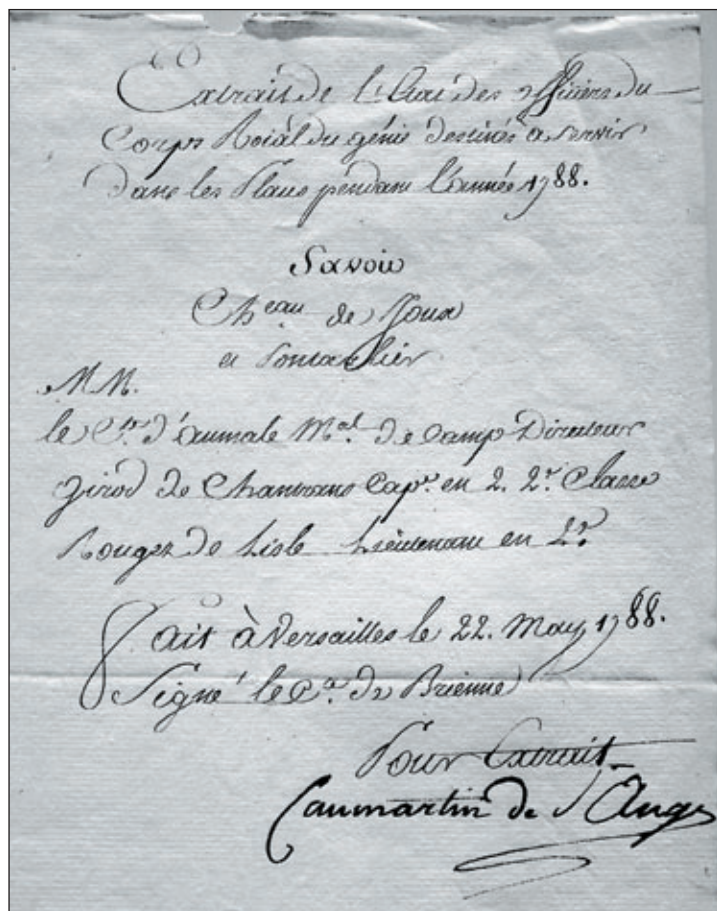 Extrait de l'Etat des officiers du
Corps Roiäl du génie destinés a servir
dans les Places pendant l'année 1788.
Savoir
Ch.eau de Joux
et Pontarlier
MM.
le C.te d'aumale M.al de Camp Directeur
Girod de Chantrans Cap.e en 2. 2.e Classe
Rouget de Lisle Lieutenant en 2.d
Fait à Versailles le 22. May 1788.
Signé le C.te de Brienne
Pour Extrait
Caumartin de S.t Ange